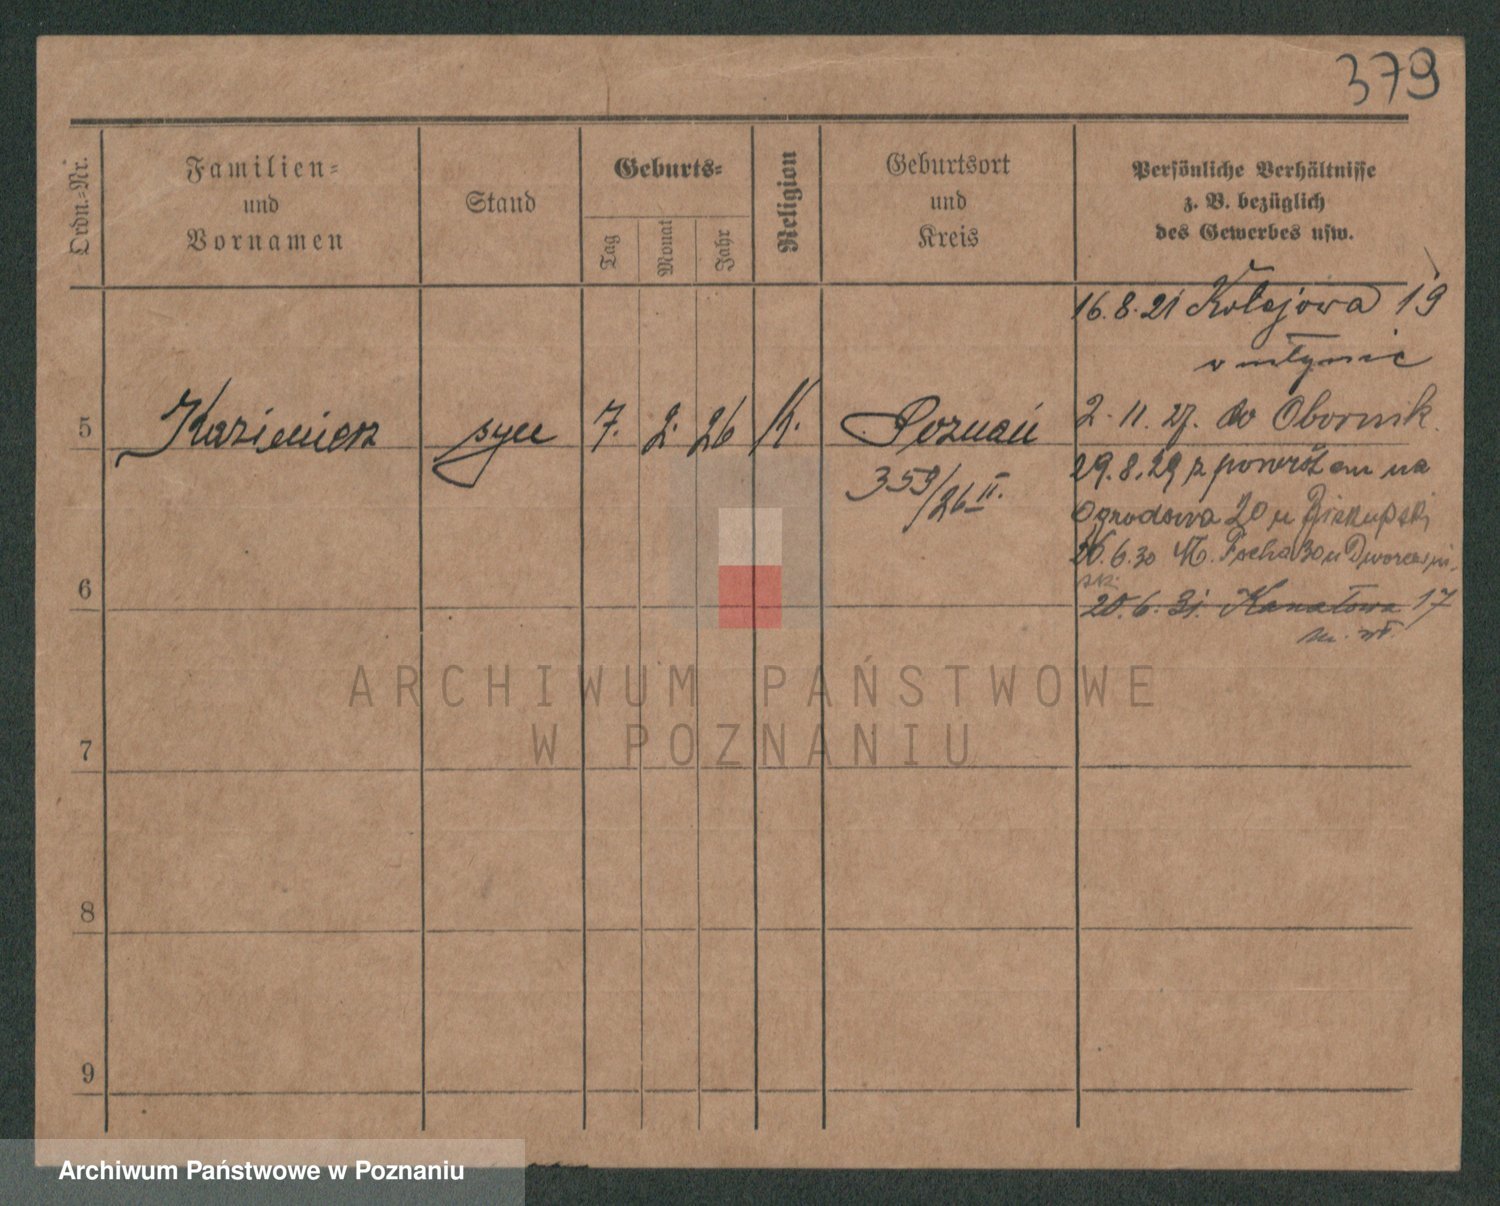 379
Ordn.-Nr.
Familien-
und
Vornamen
Stand
Geburts-
Tag
Monat
Jahr
Religion
Geburtsort
und
Kreis
Persönliche Verhältnisse
z. B. bezüglich
des Gewerbes usw.
16.8.21 Kolejowa 19
w młynie
5 Kazimierz syn 7. 2. 26 K. Poznań
359/26 II.
2. 11. 27. do Obornik.
29.8.29 z powrotem na
Ogrodowa 20 u Biskupski
26.6.30 M. Focha 30 u
20.6.31. Kanałowa 17
6
7
8
9
ARCHIWUM PAŃSTWOWE
W POZNANIU
Archiwum Państwowe w Poznaniu